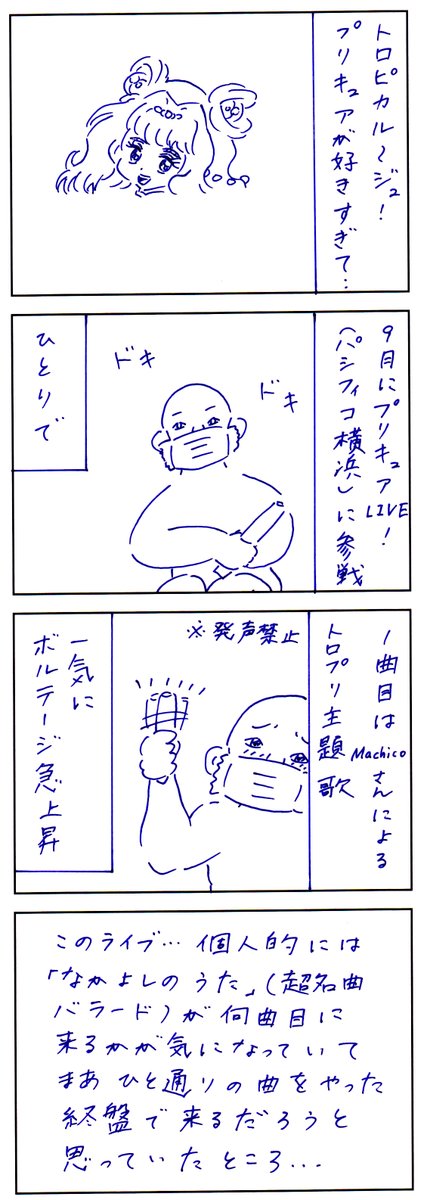 トロピカル〜ジュ!
プリキュアが好きすぎて…
9月にプリキュアLIVE!
(パシフィコ横浜)に参戦
ドキ
ドキ
ひとりで
1曲目はMachicoさんによる
トロプリ主題歌
※発声禁止
一気に
ボルテージ急上昇
このライブ…個人的には
「なかよしのうた」(超名曲
バラード)が何曲目に
来るかが気になっていて
まあひと通りの曲をやった
終盤で来るだろうと
思っていたところ…